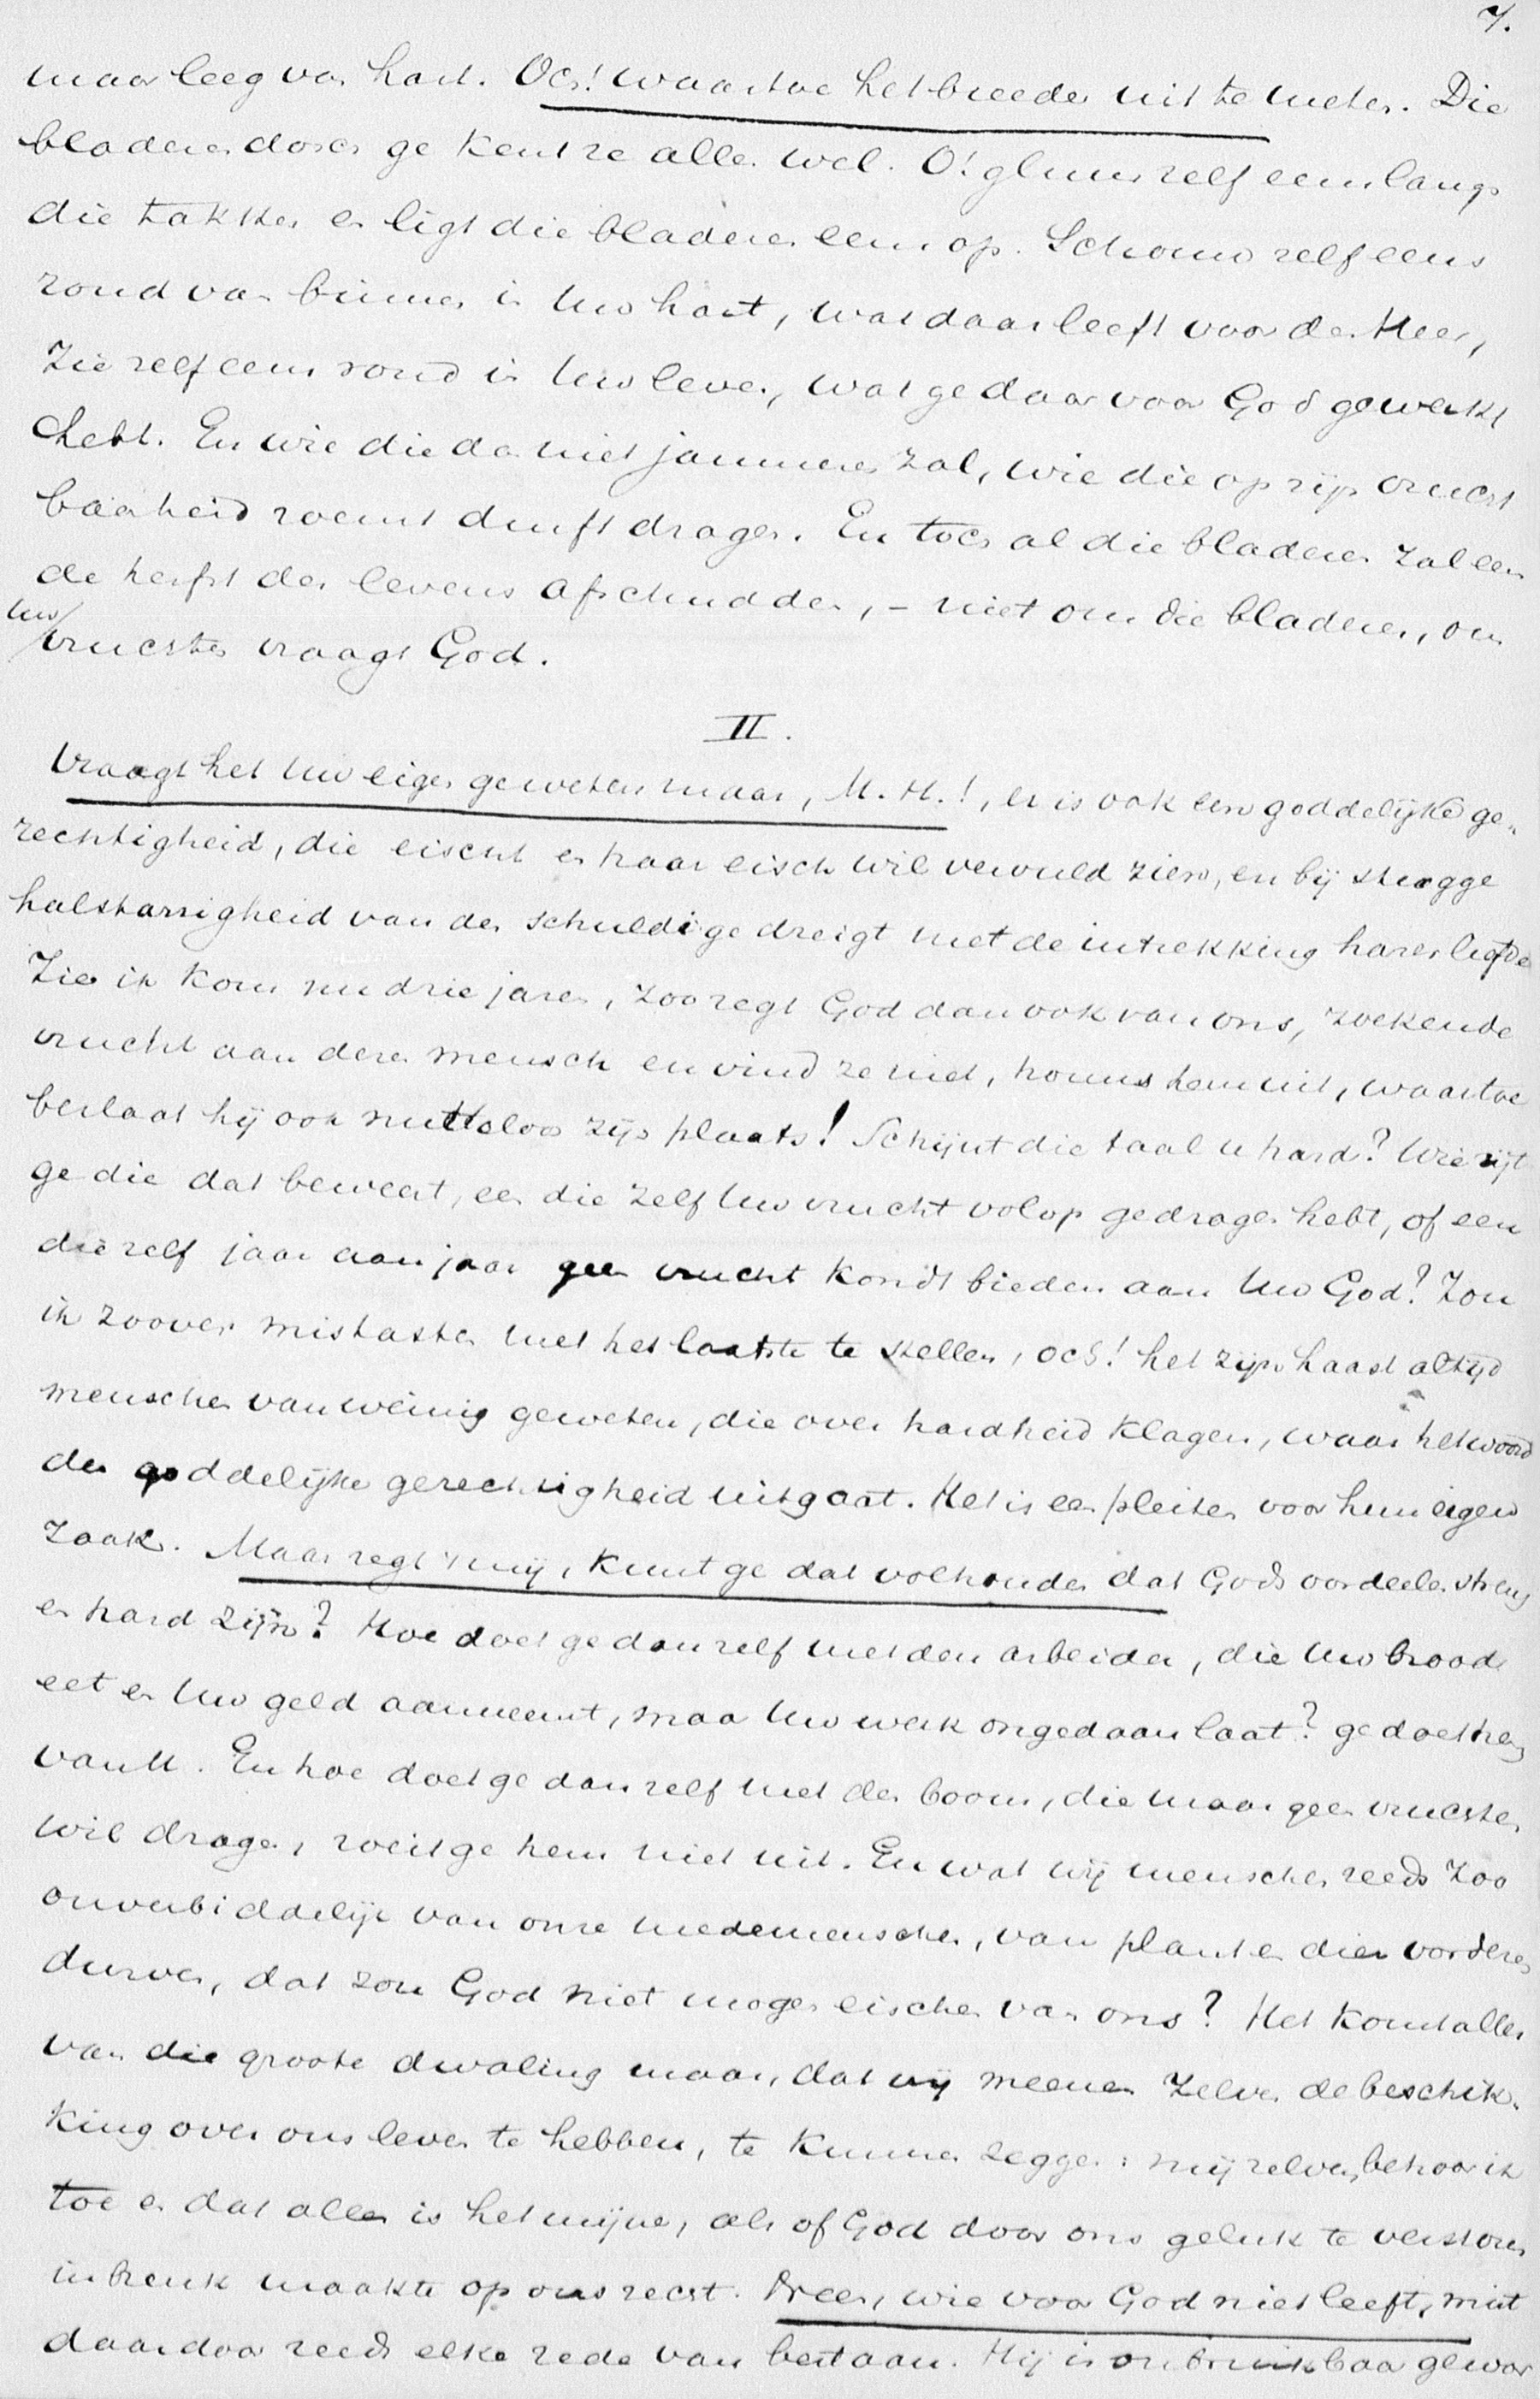 7.
maar leeg van hart. Och! waartoe het breeder uit te meten. Die
bladerendosch ge kent ze allen wel. O! gluur zelf eens langs
die takken en ligt die bladeren eens op. Schouw zelf eens
rond van binnen in Uw hart, wat daar leeft voor den Heer,
Zie zelf eens rond in Uw leven, wat ge daar voor God gewerkt
hebt. En wie die dan niet jammeren zal, wie die op rijpe vrucht
baarheid roemt durft dragen. En toch al die bladeren zal een
de herfst des levens afschudden, - niet om die bladeren, om
Uw/
vruchten vraagt God.
II.
Vraagt het Uw eigen geweten maar, M. H.!, er is ook een goddelijke ge-
rechtigheid, die eischt en haar eisch wil vervuld zien, en bij stugge
halstarrigheid van den schuldige dreigt met de intrekking harer liefde
Zie ik kom nu drie jaren, zoo zegt God dan ook van ons, zoekende
vrucht aan dezen mensch en vind ze niet, houw hem uit, waartoe
beslaat hij ook nutteloos zijn plaats! Schijnt die taal u hard? Wie zijt
ge die dat beweert, een die zelf Uw vrucht volop gedragen hebt, of een
die zelf jaar aan jaar geen vrucht kondt bieden aan Uw God? Zou
ik zoover mistasten met het laatste te stellen, och! het zijn haast altijd
menschen van weinig geweten, die over hardheid klagen, waar het woord
der goddelijke gerechtigheid uitgaat. Het is een pleiten voor hun eigen
zaak. Maar zegt mij, kunt ge dat volhouden dat Gods oordeelen streng
en hard zijn? Hoe doet ge dan zelf met den arbeider, die Uw brood
eet en Uw geld aanneemt, maar Uw werk ongedaan laat? ge doet hem
van U. En hoe doet ge dan zelf met den boom, die maar geen vruchten
wil dragen, roeit ge hem niet uit. En wat wij menschen reeds zoo
onverbiddelijk van onze medemenschen, van plant en dier vorderen
durven, dat zou God niet mogen eischen van ons? Het komt alles
van die groote dwaling maar, dat wij meenen zelven de beschik-
king over ons leven te hebben, te kunnen zeggen: mij zelven behoor ik
toe en dat alles is het mijne, als of God door ons geluk te verstoren
inbreuk maakte op ons recht. Neen, wie voor God niet leeft, mist
daardoor reeds elke rede van bestaan. Hij is onbruikbaar gewor